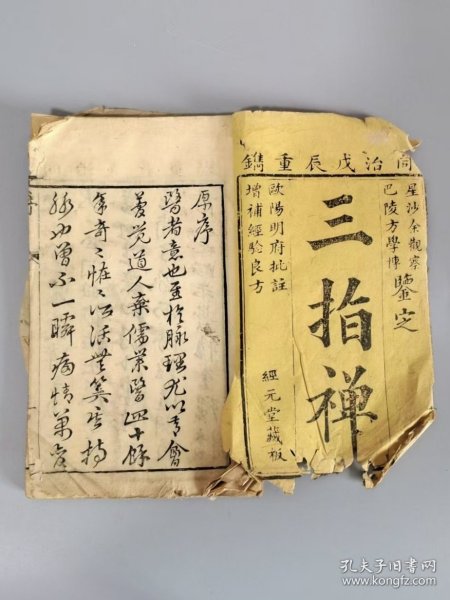 同治戊辰重鐫
星沙余觀察
巴陵方學博
鑒定
三指禪
歐陽明府批註
增補經驗良方
經元堂藏板
原序
醫者意也至於脉理尤以意會
夢覺道人棄儒業醫四十餘
年奇〻怪〻以活無算
脉也曾不一瞬病情萬
孔夫子旧书网
www.kongfz.com